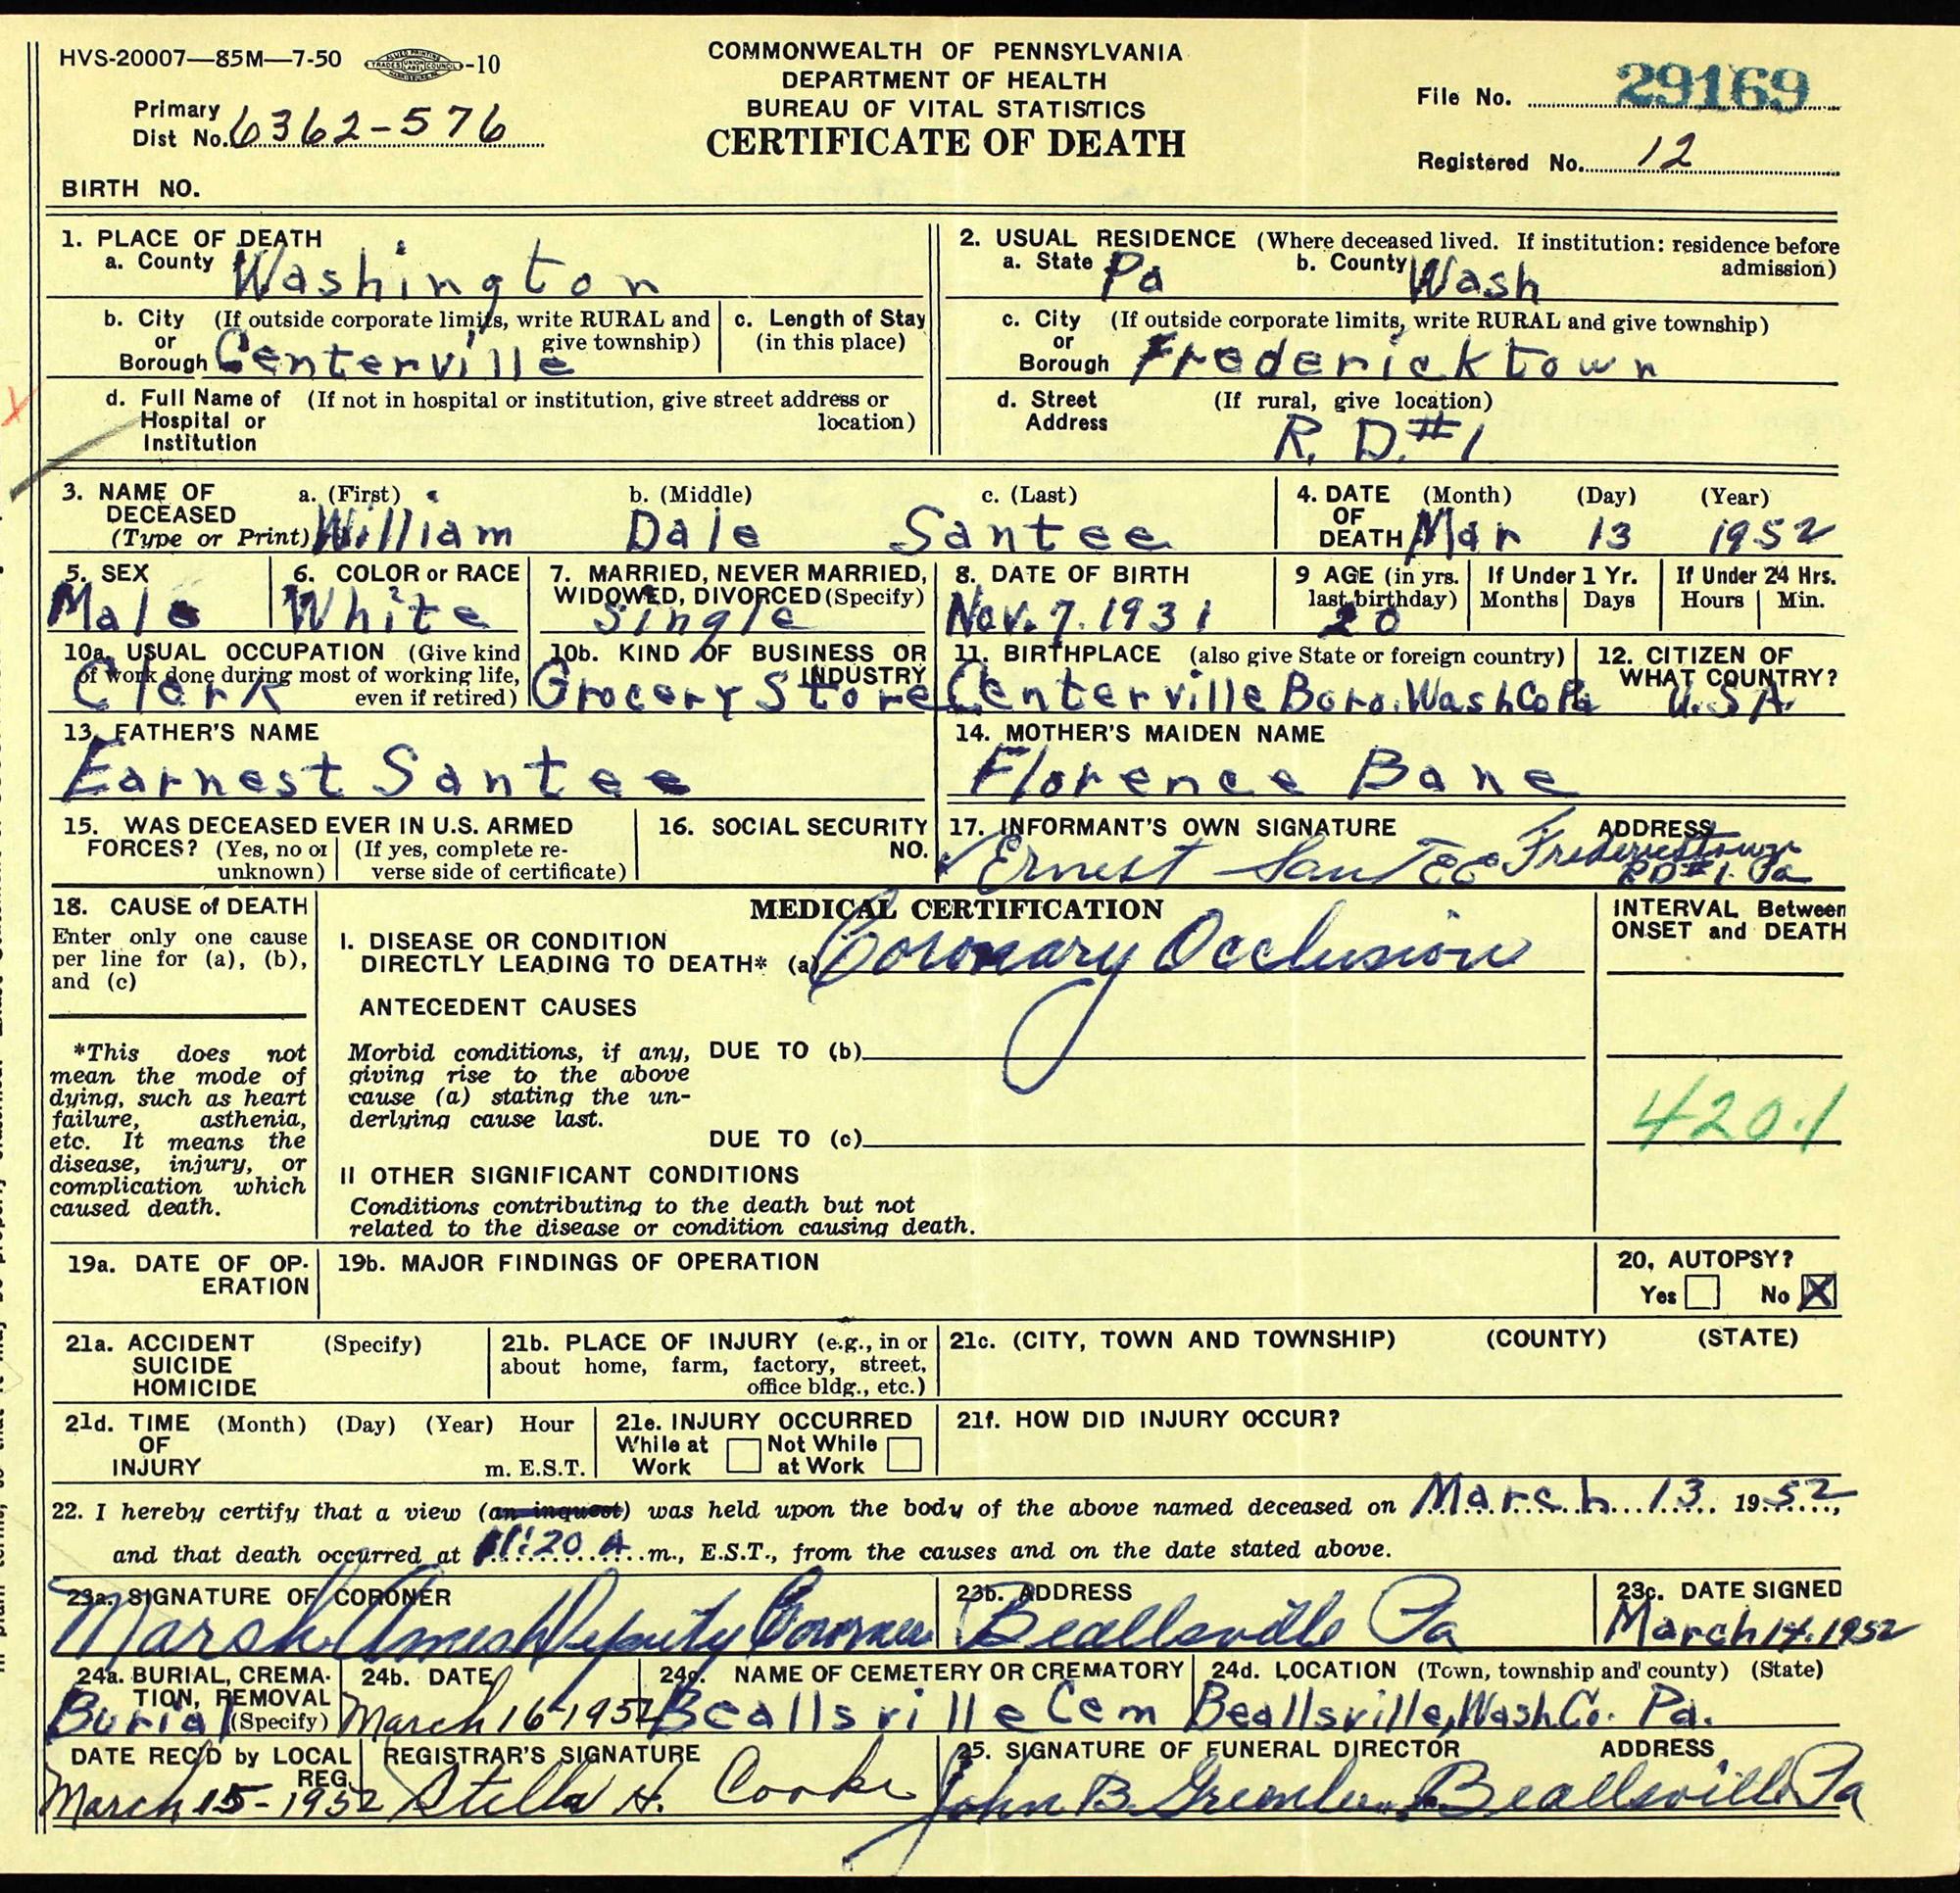 HVS-20007—85M—7-50 -10
COMMONWEALTH OF PENNSYLVANIA
DEPARTMENT OF HEALTH
BUREAU OF VITAL STATISTICS
CERTIFICATE OF DEATH
File No. 29169
Primary
Dist No. 6362-576
Registered No. 12
BIRTH NO.
1. PLACE OF DEATH
a. County Washington
b. City (If outside corporate limits, write RURAL and
or give township)
Borough Centerville
c. Length of Stay
(in this place)
d. Full Name of (If not in hospital or institution, give street address or
Hospital or location)
Institution
2. USUAL RESIDENCE (Where deceased lived. If institution: residence before
a. State Pa b. County Wash admission)
c. City (If outside corporate limits, write RURAL and give township)
or
Borough Fredericktown
d. Street (If rural, give location)
Address R. D. #1
3. NAME OF a. (First) b. (Middle) c. (Last)
DECEASED
(Type or Print) William Dale Santee
4. DATE (Month) (Day) (Year)
OF
DEATH Mar 13 1952
5. SEX
Male
6. COLOR or RACE
White
7. MARRIED, NEVER MARRIED,
WIDOWED, DIVORCED (Specify)
Single
8. DATE OF BIRTH
Nov. 7. 1931
9 AGE (in yrs.
last birthday)
20
If Under 1 Yr.
Months Days
If Under 24 Hrs.
Hours Min.
10a. USUAL OCCUPATION (Give kind
of work done during most of working life,
even if retired)
Clerk
10b. KIND OF BUSINESS OR
INDUSTRY
Grocery Store
11. BIRTHPLACE (also give State or foreign country)
Centerville Boro. Wash Co Pa
12. CITIZEN OF
WHAT COUNTRY?
U.S.A.
13. FATHER'S NAME
Earnest Santee
14. MOTHER'S MAIDEN NAME
Florence Bane
15. WAS DECEASED EVER IN U.S. ARMED
FORCES? (Yes, no or (If yes, complete re-
unknown) verse side of certificate)
16. SOCIAL SECURITY
NO.
17. INFORMANT'S OWN SIGNATURE ADDRESS
Ernest San Tee Fredericktown
RD#1. Pa
18. CAUSE of DEATH
Enter only one cause
per line for (a), (b),
and (c)
*This does not
mean the mode of
dying, such as heart
failure, asthenia,
etc. It means the
disease, injury, or
complication which
caused death.
MEDICAL CERTIFICATION
I. DISEASE OR CONDITION
DIRECTLY LEADING TO DEATH* (a) Coronary Occlusion
ANTECEDENT CAUSES
Morbid conditions, if any, DUE TO (b)
giving rise to the above
cause (a) stating the un-
derlying cause last.
DUE TO (c)
II OTHER SIGNIFICANT CONDITIONS
Conditions contributing to the death but not
related to the disease or condition causing death.
INTERVAL Between
ONSET and DEATH
420.1
19a. DATE OF OP-
ERATION
19b. MAJOR FINDINGS OF OPERATION
20, AUTOPSY?
Yes No X
21a. ACCIDENT (Specify)
SUICIDE
HOMICIDE
21b. PLACE OF INJURY (e.g., in or
about home, farm, factory, street,
office bldg., etc.)
21c. (CITY, TOWN AND TOWNSHIP) (COUNTY) (STATE)
21d. TIME (Month) (Day) (Year) Hour
OF
INJURY m. E.S.T.
21e. INJURY OCCURRED
While at Not While
Work at Work
21f. HOW DID INJURY OCCUR?
22. I hereby certify that a view (an inquest) was held upon the body of the above named deceased on March 13 1952,
and that death occurred at 11:20 A m., E.S.T., from the causes and on the date stated above.
23a. SIGNATURE OF CORONER
Marsh Deputy Coroner
23b. ADDRESS
Beallsville Pa
23c. DATE SIGNED
March 14. 1952
24a. BURIAL, CREMA-
TION, REMOVAL
(Specify)
Burial
24b. DATE
March 16-1952
24c. NAME OF CEMETERY OR CREMATORY
Beallsville Cem
24d. LOCATION (Town, township and county) (State)
Beallsville, Wash Co. Pa.
DATE REC'D by LOCAL
REG.
March 15-1952
REGISTRAR'S SIGNATURE
Stella H. Cooke
25. SIGNATURE OF FUNERAL DIRECTOR ADDRESS
John B. Beallsville Pa